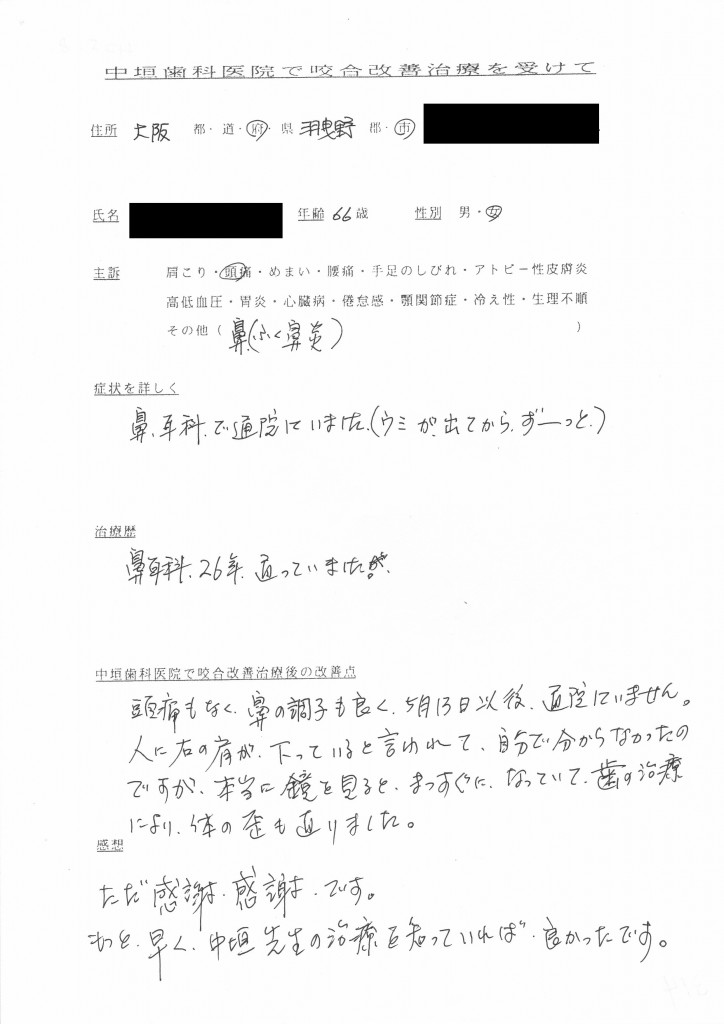 中垣歯科医院で咬合改善治療を受けて
住所 大阪 都・道・府・県 羽曳野 郡・市
氏名 年齢 66歳 性別 男・女
主訴 肩こり・頭痛・めまい・腰痛・手足のしびれ・アトピー性皮膚炎
高低血圧・胃炎・心臓病・倦怠感・顎関節症・冷え性・生理不順
その他(鼻(ふく鼻炎) )
症状を詳しく
鼻、耳科、で通院していました、(ウミが、出てから、ずーっと、)
治療歴
鼻耳科、26年、通っていましたが、
中垣歯科医院で咬合改善治療後の改善点
頭痛もなく、鼻の調子も良く、5月13日以後、通院していません。
人に右の肩が、下っていると言われて、自分で分からなかったの
ですが、本当に鏡を見ると、まっすぐに、なっていて、歯の治療
により、体の歪も直りました。
感想
ただ感謝、感謝、です。
もっと、早く、中垣先生の治療を知っていれば、良かったです。